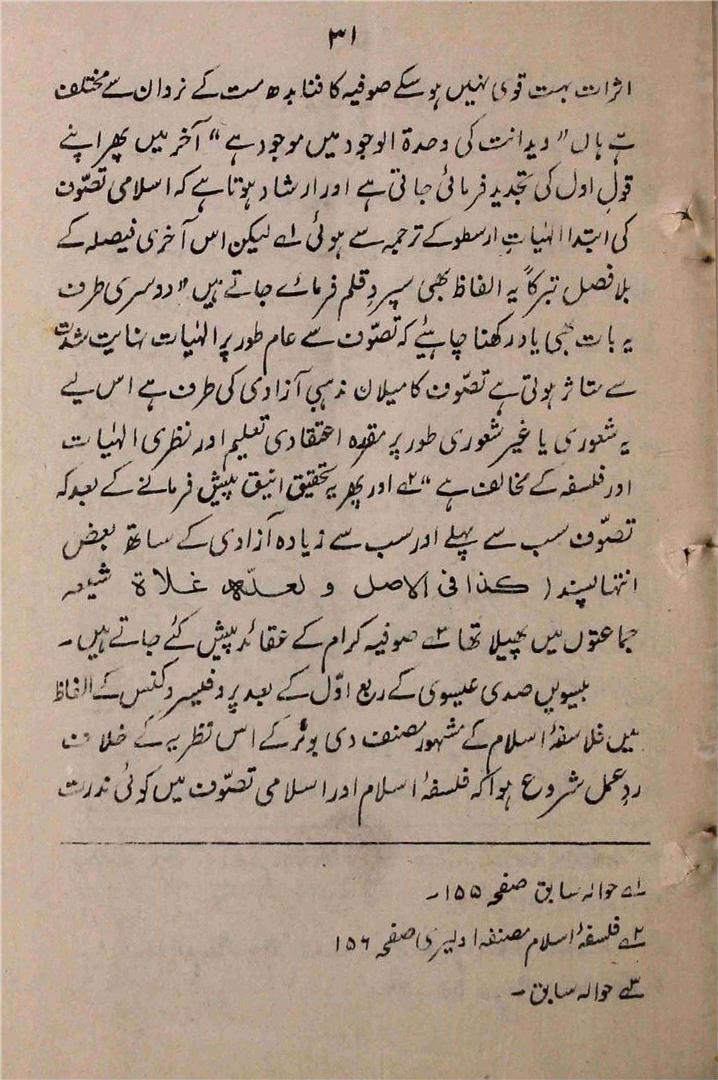 ۳۱
اثرات بہت قوی نہیں ہو سکے صوفیہ کا فنا بدھ مت کے نردان سے مختلف
ہے ہاں " ویدانت کی وحدۃ الوجود میں موجود ہے " آخر میں پھر اپنے
قولِ اول کی تجدید فرمائی جاتی ہے اور ارشاد ہوتا ہے کہ اسلامی تصوّف
کی ابتدا الہٰیاتِ ارسطو کے ترجمہ سے ہوئی ۱ے لیکن اس آخری فیصلہ کے
بلا فصل تبرکاً یہ الفاظ بھی سپردِ قلم فرمائے جاتے ہیں " دوسری طرف
یہ بات بھی یاد رکھنا چاہئیے کہ تصوّف سے عام طور پر الہٰیات نہایت شدت
سے متاثر ہوتی ہے تصوّف کا میلان مذہبی آزادی کی طرف ہے اس لیے
یہ شعوری یا غیر شعوری طور پر مقررہ اعتقادی تعلیم اور نظری الہٰیات
اور فلسفہ کے مخالف ہے " ۲ے اور پھر یہ تحقیق انیق پیش فرمانے کے بعد کہ
تصوّف سب سے پہلے اور سب سے زیادہ آزادی کے ساتھ بعض
انتہا پسند ( کذا فی الاصل و لعلہ غلاۃ شیعہ
جماعتوں میں پھیلا تھا ۳ے صوفیہ کرام کے عقائد پیش کئے جاتے ہیں۔
بیسویں صدی عیسوی کے ربع اوّل کے بعد پروفیسر ڈکنس کے الفاظ
میں فلاسفۂ اسلام کے مشہور مصنف دی بوئر کے اس نظریے کے خلاف
ردِ عمل شروع ہوا کہ فلسفۂ اسلام اور اسلامی تصوّف میں کوئی ندرت
۱ے حوالہ سابق صفحہ ۱۵۵۔
۲ے فلسفۂ اسلام مصنفہ اولیری صفحہ ۱۵۶
۳ے حوالہ سابق ۔